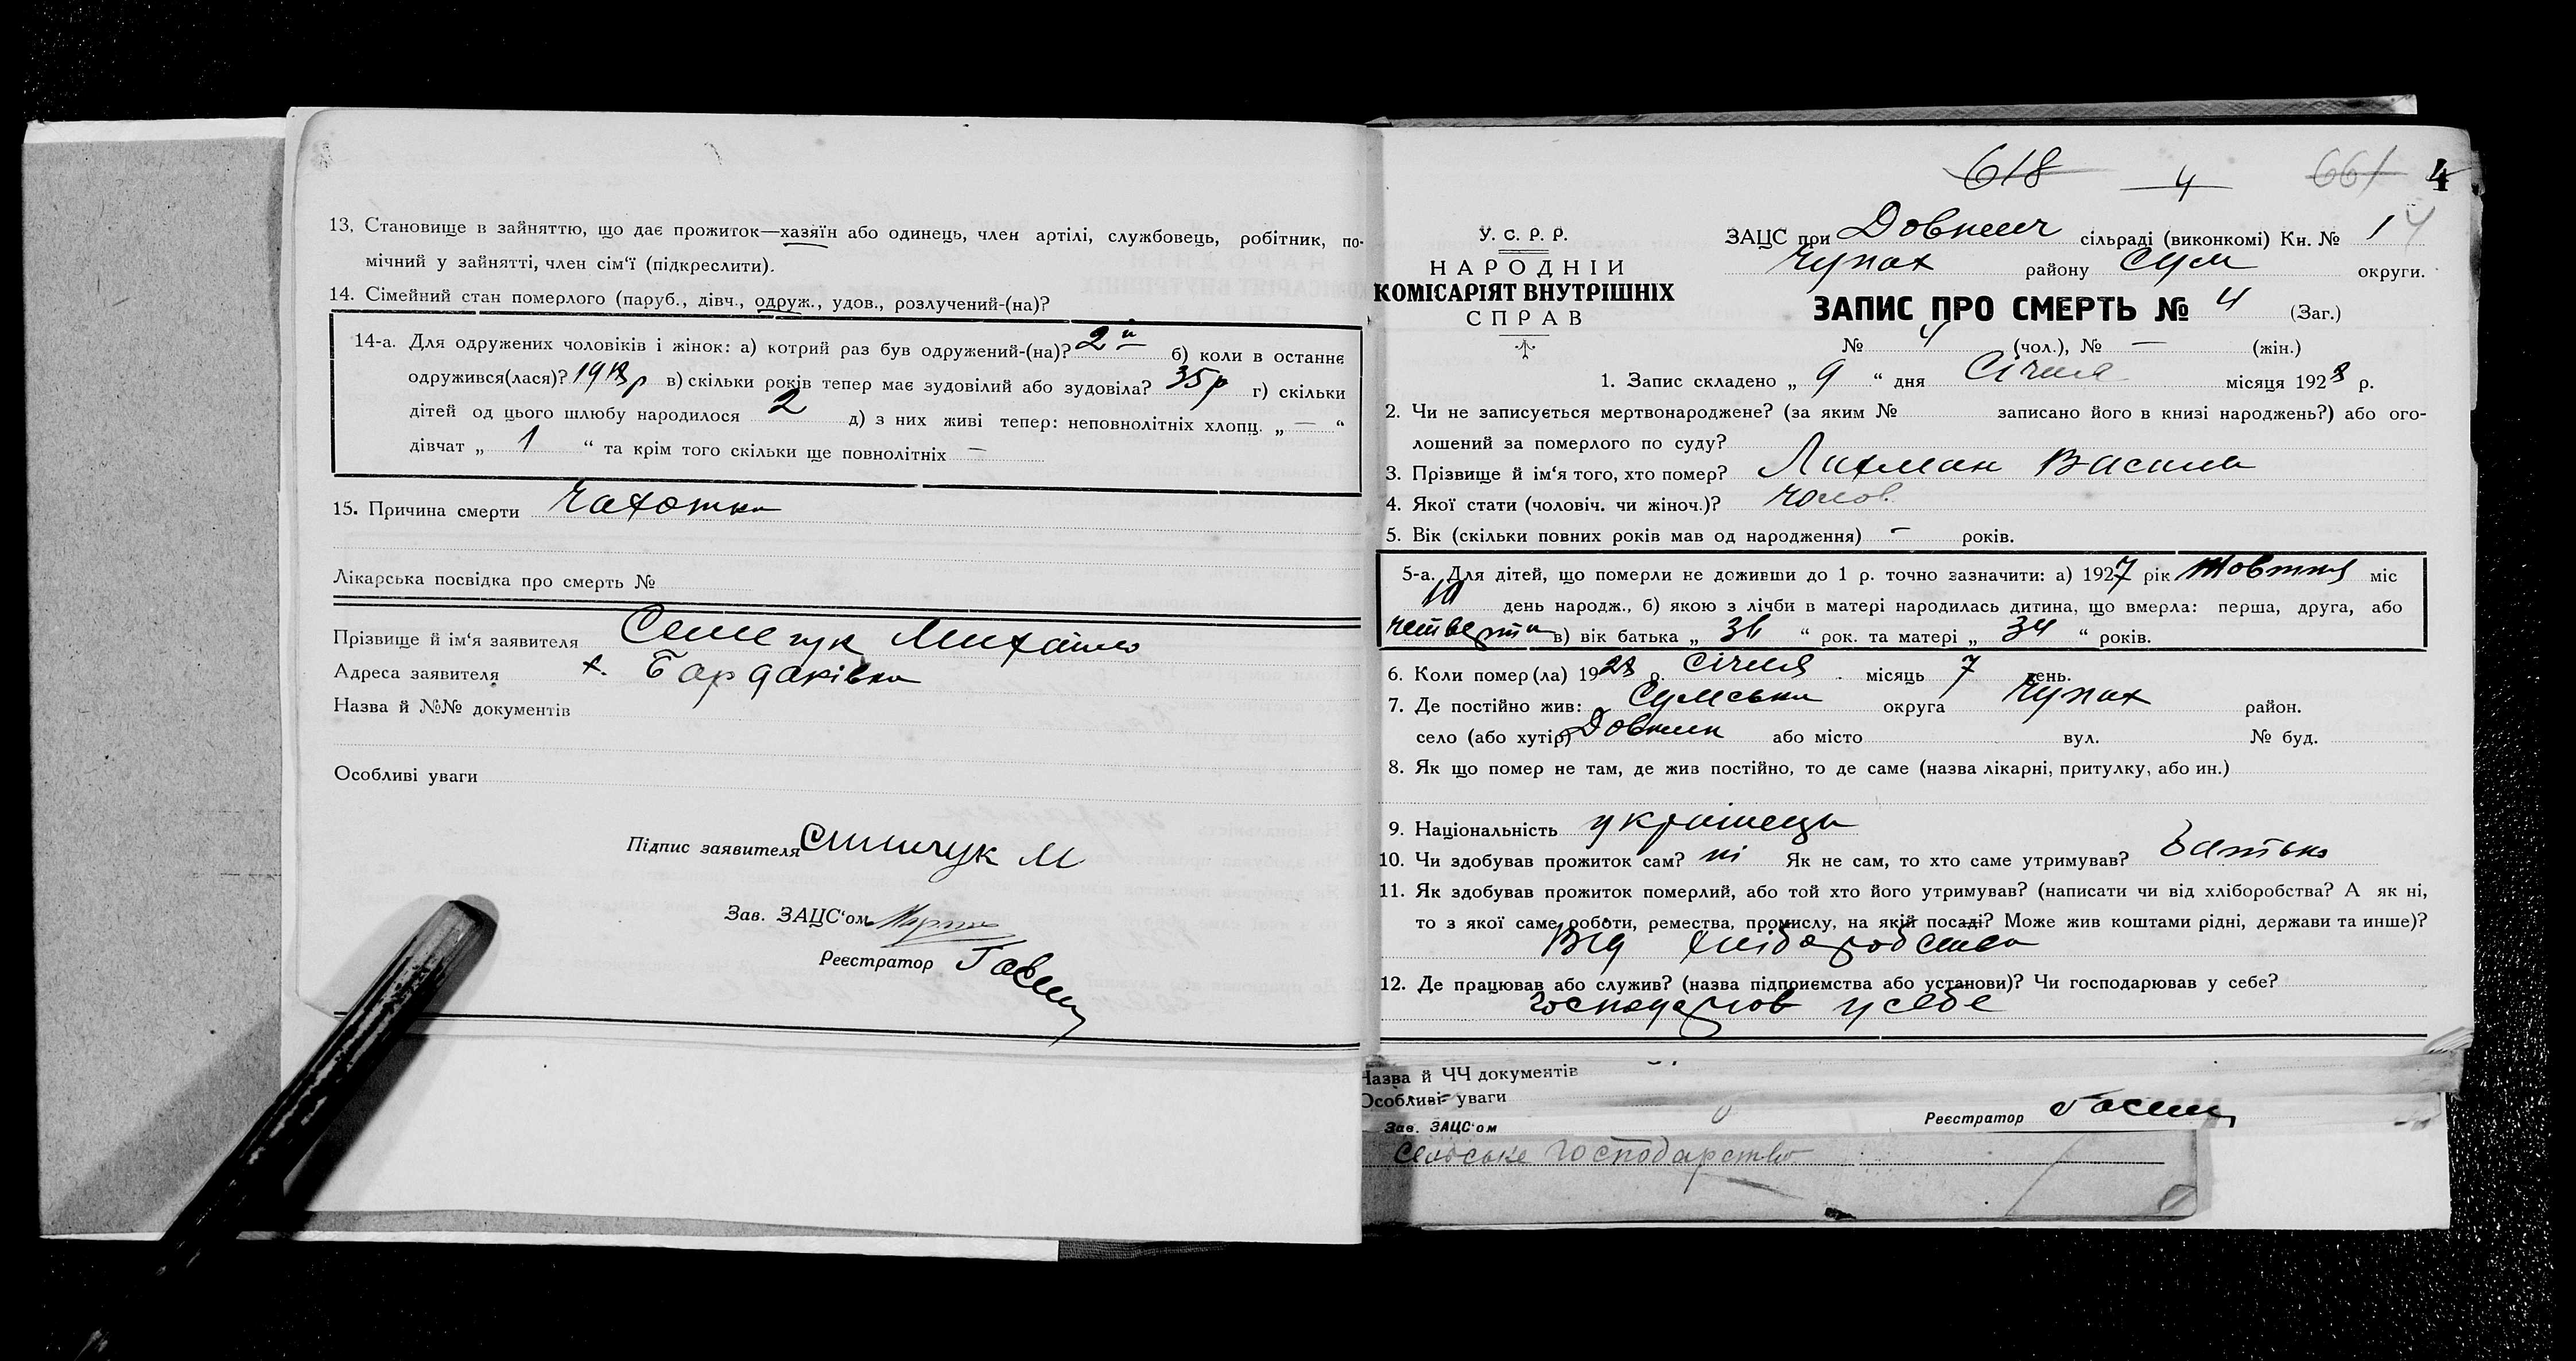 13. Становище в зайняттю, що дає прожиток—хазяїн або одинець, член артілі, службовець, робітник, по-
мічний у зайнятті, член сім'ї (підкреслити).
14. Сімейний стан померлого (паруб., дівч., одруж., удов., розлучений-(на)?
14-а. Для одружених чоловіків і жінок: а) котрий раз був одружений-(на)? 2й б) коли в останнє
одружився(лася)? р в) скільки років тепер має зудовілий або зудовіла? 35р г) скільки
дітей од цього шлюбу народилося 2 д) з них живі тепер: неповнолітніх хлопц. „ — “
дівчат „ 1 “ та крім того скільки ще повнолітніх —
15. Причина смерти Чахотка
Лікарська посвідка про смерть №
Прізвище й ім'я заявителя Семчук Михайло
Адреса заявителя х. Бардаківка
Назва й №№ документів
Особливі уваги
Підпис заявителя М
Зав. ЗАЦС'ом
Реєстратор
618 4 661 4
У. С. Р. Р.
НАРОДНІЙ
КОМІСАРІЯТ ВНУТРІШНІХ
СПРАВ
ЗАЦС при сільраді (виконкомі) Кн. № 1 4
Чупах району Сум округи.
ЗАПИС ПРО СМЕРТЬ № 4 (Заг.)
№ 4 (чол.), № — (жін.)
1. Запис складено „ 9 “ дня Січня місяця 1928 р.
2. Чи не записується мертвонароджене? (за яким № записано його в книзі народжень?) або ого-
лошений за померлого по суду?
3. Прізвище й ім'я того, хто помер? Лахман Василь
4. Якої стати (чоловіч. чи жіноч.)? Чолов.
5. Вік (скільки повних років мав од народження) — років.
5-а. Для дітей, що померли не доживши до 1 р. точно зазначити: а) 1927 рік Жовтня міс
10 день народж., б) якою з лічби в матері народилась дитина, що вмерла: перша, друга, або
четверта в) вік батька „ “ рок. та матері „ 34 “ років.
6. Коли помер(ла) 1928 р. Січня місяць 7 день.
7. Де постійно жив: Сумська округа Чупах район.
село (або хутір) або місто вул. № буд.
8. Як що помер не там, де жив постійно, то де саме (назва лікарні, притулку, або ин.)
9. Національність українець
10. Чи здобував прожиток сам? ні Як не сам, то хто саме утримував? Батько
11. Як здобував прожиток померлий, або той хто його утримував? (написати чи від хліборобства? А як ні,
то з якої саме роботи, ремества, промислу, на якій посаді? Може жив коштами рідні, держави та инше)?
Від хліборобства
12. Де працював або служив? (назва підприємства або установи)? Чи господарював у себе?
господарюв у себе
Назва й ЧЧ документів
Особливі уваги
Зав. ЗАЦС'ом Реєстратор
сельське господарство